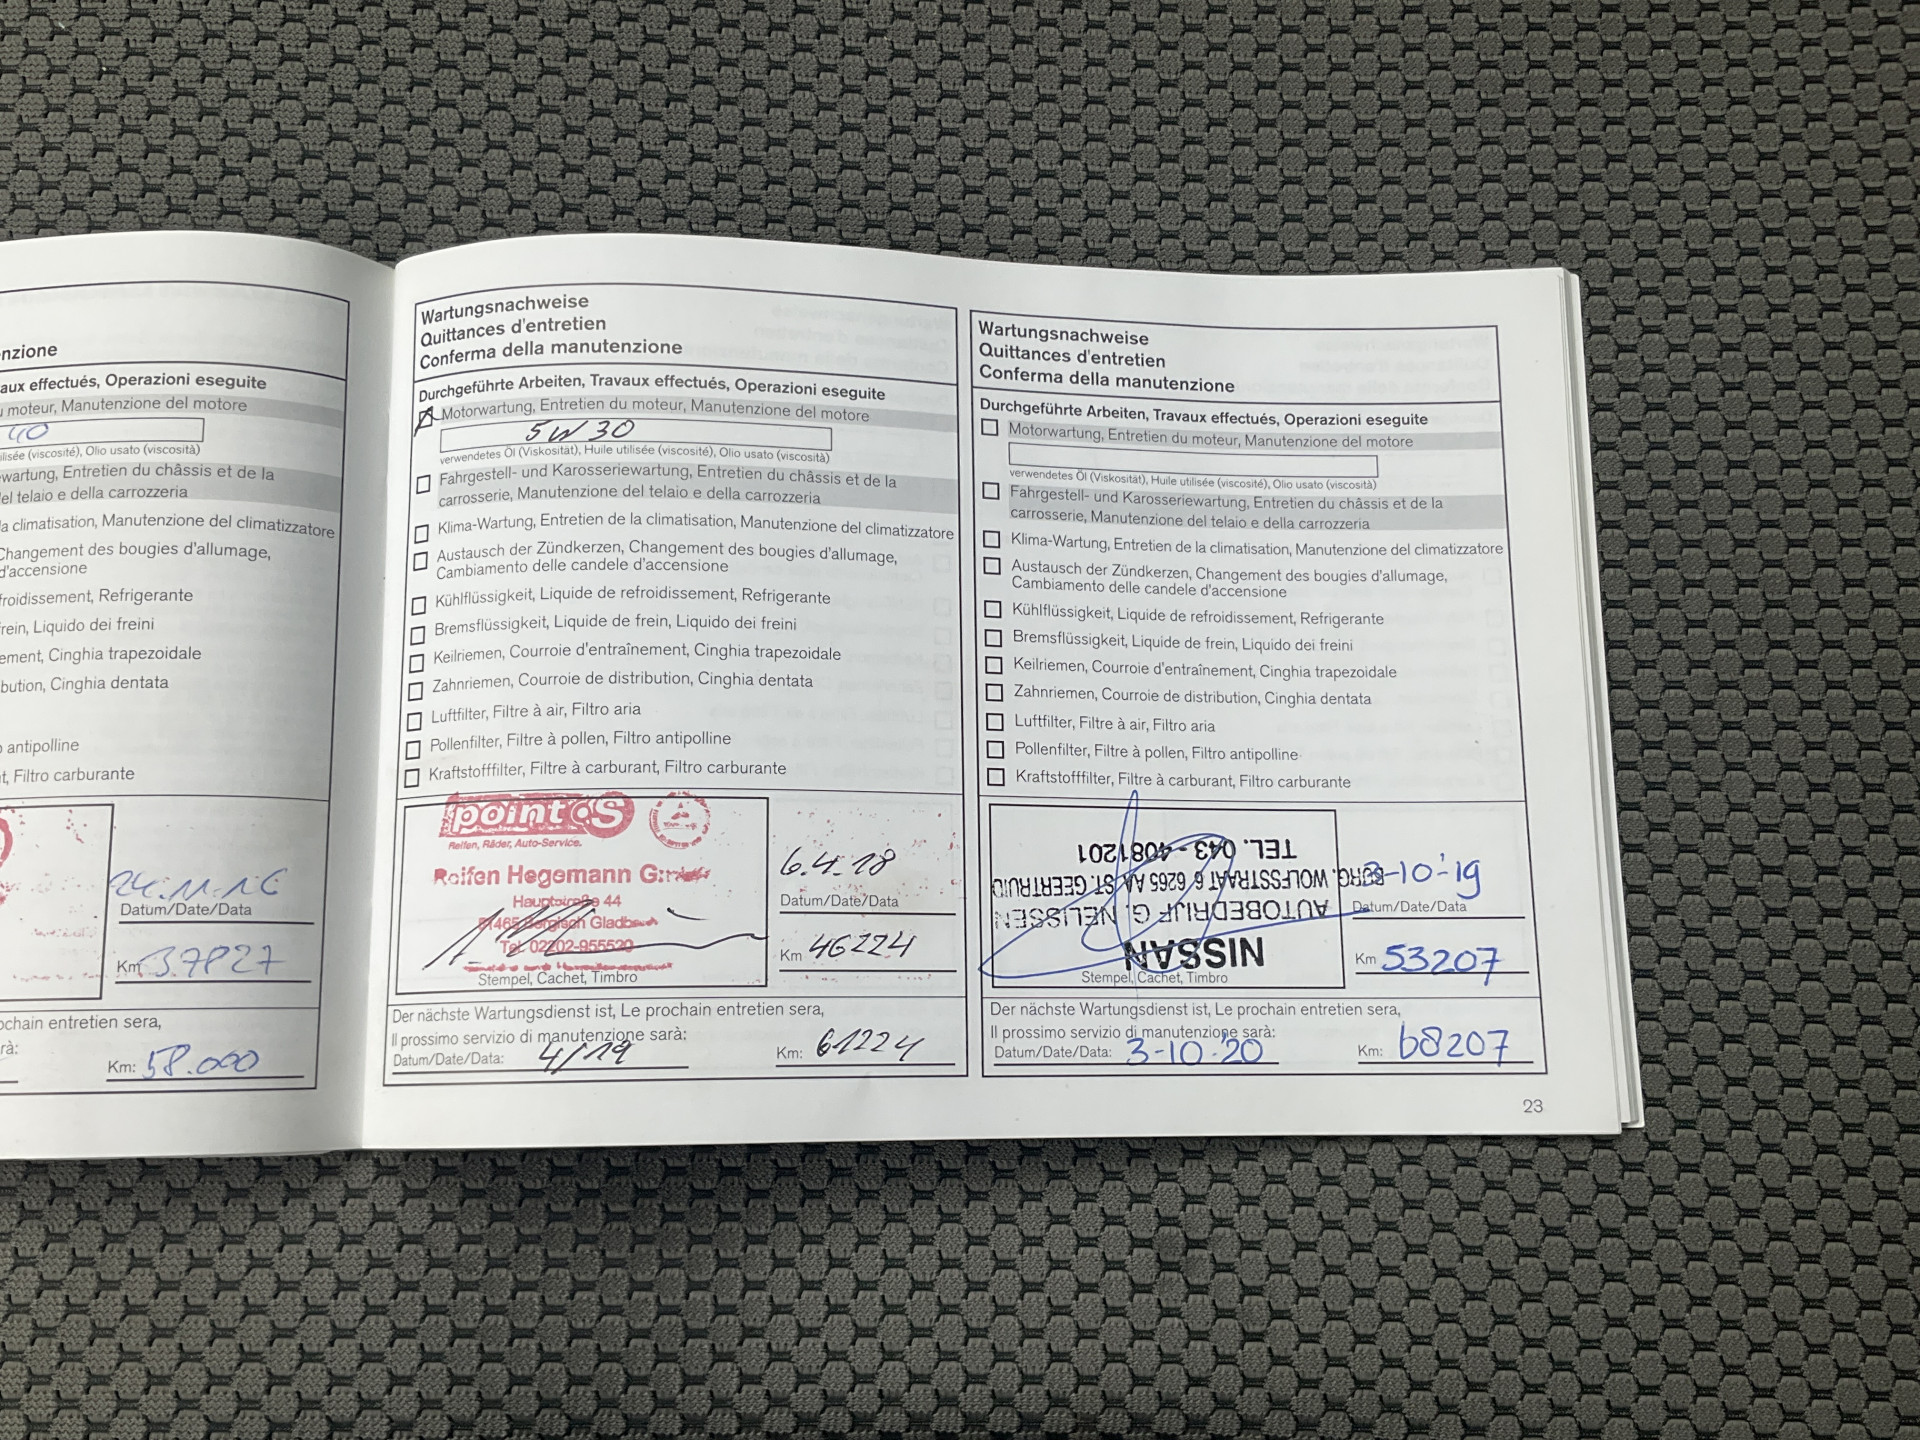 nzione
aux effectués, Operazioni eseguite
moteur, Manutenzione del motore
40
ilisée (viscosité), Olio usato (viscosità)
wartung, Entretien du châssis et de la
el telaio e della carrozzeria
la climatisation, Manutenzione del climatizzatore
Changement des bougies d'allumage,
d'accensione
froidissement, Refrigerante
rein, Liquido dei freini
ement, Cinghia trapezoidale
bution, Cinghia dentata
antipolline
t, Filtro carburante
24.11.16
Datum/Date/Data
Km 37827
ochain entretien sera,
rà:
Km: 58.000
Wartungsnachweise
Quittances d'entretien
Conferma della manutenzione
Durchgeführte Arbeiten, Travaux effectués, Operazioni eseguite
Motorwartung, Entretien du moteur, Manutenzione del motore
5W30
verwendetes Öl (Viskosität), Huile utilisée (viscosité), Olio usato (viscosità)
Fahrgestell- und Karosseriewartung, Entretien du châssis et de la
carrosserie, Manutenzione del telaio e della carrozzeria
Klima-Wartung, Entretien de la climatisation, Manutenzione del climatizzatore
Austausch der Zündkerzen, Changement des bougies d'allumage,
Cambiamento delle candele d'accensione
Kühlflüssigkeit, Liquide de refroidissement, Refrigerante
Bremsflüssigkeit, Liquide de frein, Liquido dei freini
Keilriemen, Courroie d'entraînement, Cinghia trapezoidale
Zahnriemen, Courroie de distribution, Cinghia dentata
Luftfilter, Filtre à air, Filtro aria
Pollenfilter, Filtre à pollen, Filtro antipolline
Kraftstofffilter, Filtre à carburant, Filtro carburante
point S
Reifen, Räder, Auto-Service.
Reifen Hegemann GmbH
Hauptstraße 44
51465 Bergisch Gladbach
Tel. 02202-955520
Stempel, Cachet, Timbro
6.4.18
Datum/Date/Data
Km 46224
Der nächste Wartungsdienst ist, Le prochain entretien sera,
Il prossimo servizio di manutenzione sarà:
Datum/Date/Data: 4/19
Km: 61224
Wartungsnachweise
Quittances d'entretien
Conferma della manutenzione
Durchgeführte Arbeiten, Travaux effectués, Operazioni eseguite
Motorwartung, Entretien du moteur, Manutenzione del motore
verwendetes Öl (Viskosität), Huile utilisée (viscosité), Olio usato (viscosità)
Fahrgestell- und Karosseriewartung, Entretien du châssis et de la
carrosserie, Manutenzione del telaio e della carrozzeria
Klima-Wartung, Entretien de la climatisation, Manutenzione del climatizzatore
Austausch der Zündkerzen, Changement des bougies d'allumage,
Cambiamento delle candele d'accensione
Kühlflüssigkeit, Liquide de refroidissement, Refrigerante
Bremsflüssigkeit, Liquide de frein, Liquido dei freini
Keilriemen, Courroie d'entraînement, Cinghia trapezoidale
Zahnriemen, Courroie de distribution, Cinghia dentata
Luftfilter, Filtre à air, Filtro aria
Pollenfilter, Filtre à pollen, Filtro antipolline
Kraftstofffilter, Filtre à carburant, Filtro carburante
NISSAN
AUTOBEDRIJF G. NELISSEN
BURG. WOLFSSTRAAT 6 6265 AA ST. GEERTRUID
TEL. 043 - 4081201
Stempel, Cachet, Timbro
3-10-'19
Datum/Date/Data
Km 53207
Der nächste Wartungsdienst ist, Le prochain entretien sera,
Il prossimo servizio di manutenzione sarà:
Datum/Date/Data: 3-10-'20
Km: 68207
23